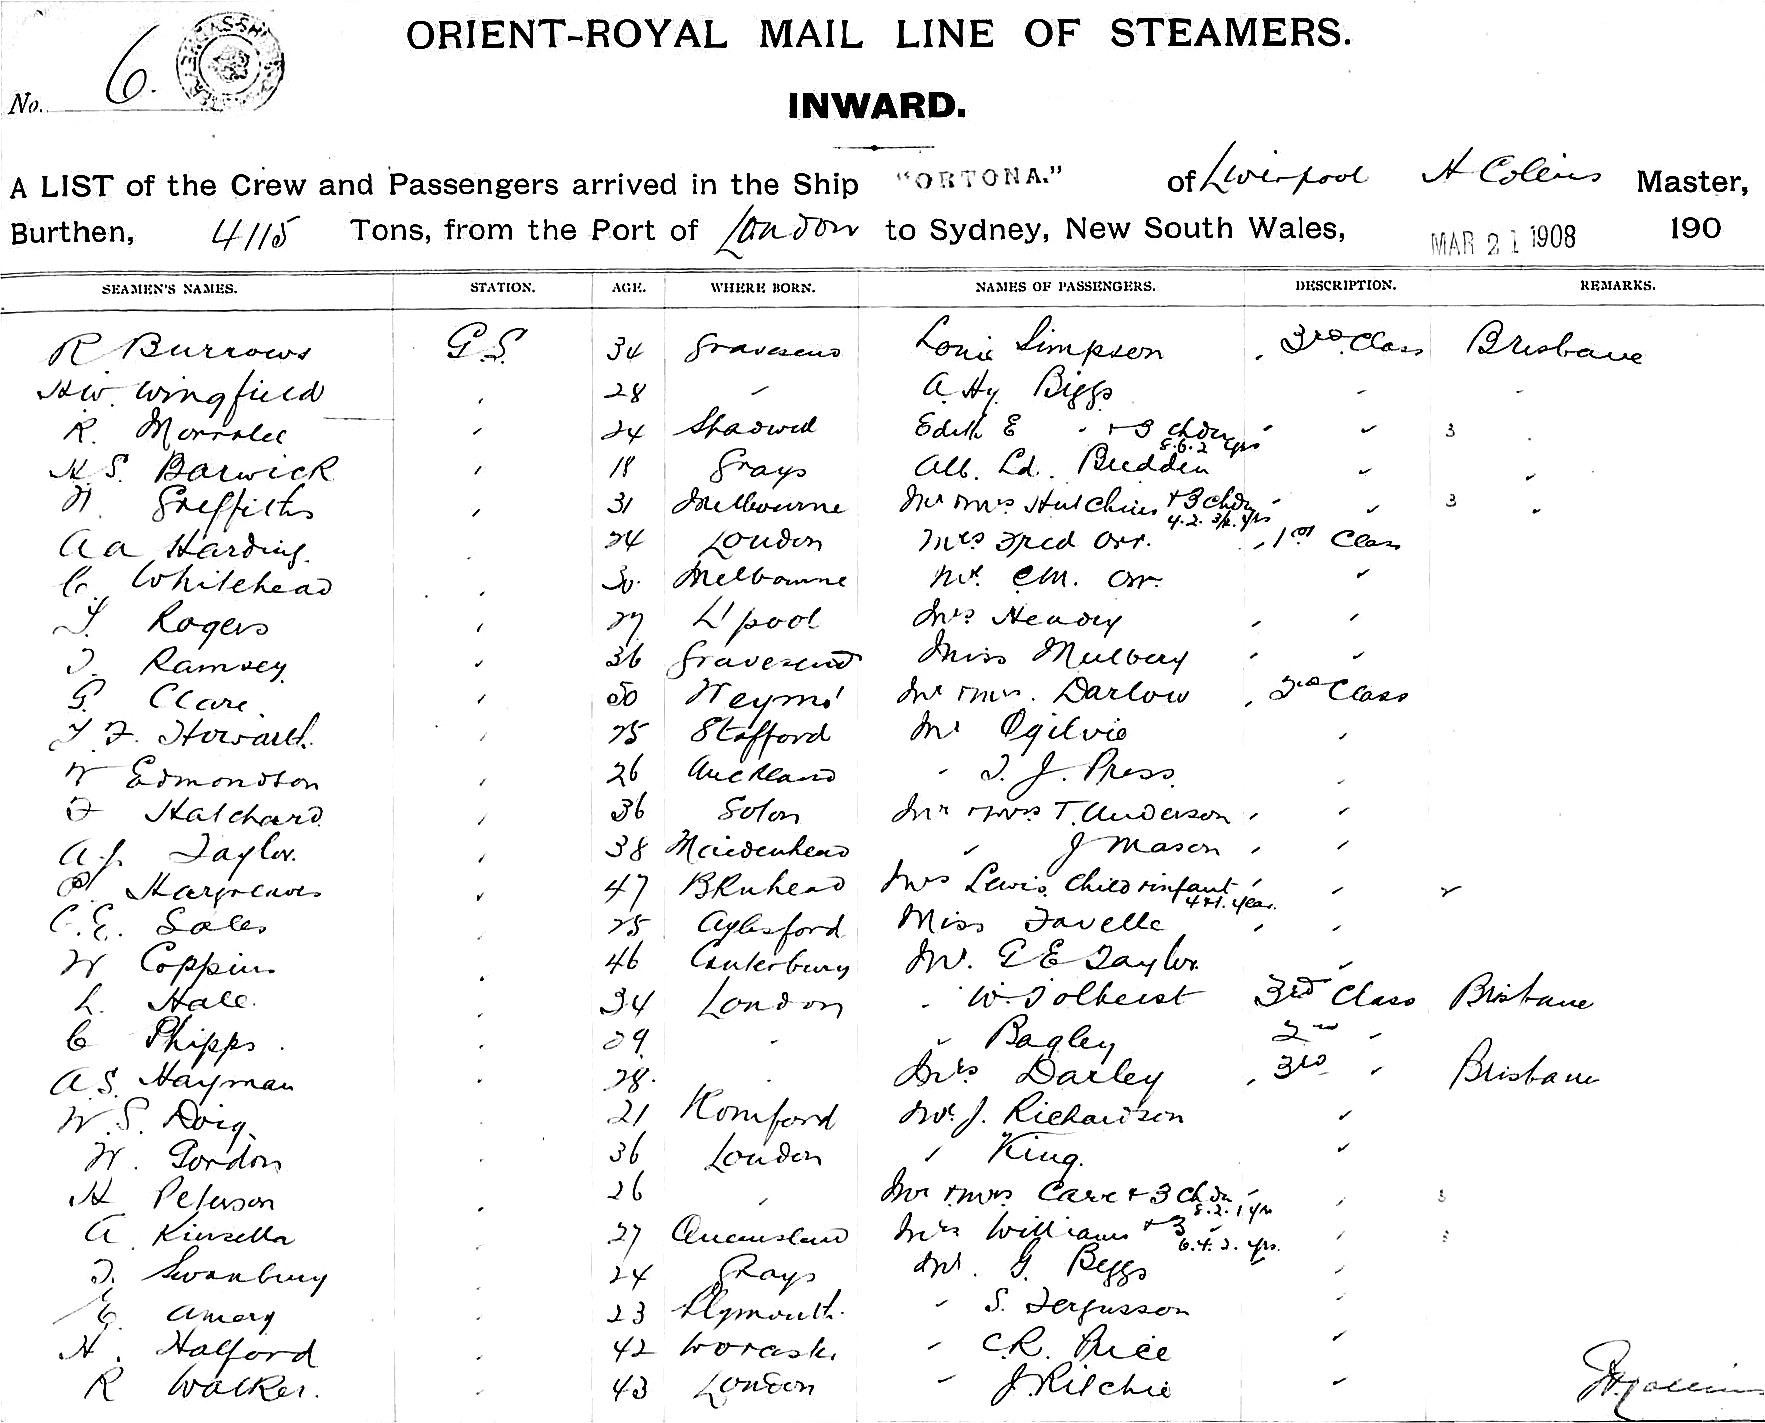 No. 6.
ORIENT-ROYAL MAIL LINE OF STEAMERS.
INWARD.
A LIST of the Crew and Passengers arrived in the Ship "ORTONA." of Liverpool H Collins Master,
Burthen, 4115 Tons, from the Port of London to Sydney, New South Wales, MAR 21 1908 190
SEAMEN'S NAMES. STATION. AGE. WHERE BORN. NAMES OF PASSENGERS. DESCRIPTION. REMARKS.
R Burrows G.S. 34 Gravesend Louie Simpson 3rd Class Brisbane
HW. Wingfield 28 " A. Hy. Biggs
R. Morralee 24 Shadwell Edith E " + 3 chdn 3
8.6.2 yrs
H S. Barwick 18 Grays Alb. Ed. Budden
W Griffiths 31 Melbourne Mr & Mrs Hutchins + 3 chdn 3
A A Harding. 24 London Mrs Fred Orr. 1st Class
C. Whitehead 30 Melbourne Mr. C.M. Orr.
T. Rogers 27 L'pool Mrs Hendry
T. Ramsey. 36 Gravesend Miss Mulbery
G. Clare. 50 Weym' Mr & Mrs. Darlow 2nd Class
T. F. Howarth. 25 Stafford Mr Ogilvie
W Edmondson 26 Auckland " T. J. Press
F Hatchard 36 Soton Mr & Mrs T. Anderson
A.J. Taylor. 38 Maidenhead " J Mason
P. Hargreaves 47 B'Knhead Mrs Lewis child & infant 2
4 & 1. year.
C.E. Sales 25 Aylesford Miss Favelle
W Coppins 46 Canterbury Mr. G E Taylor
L. Hall. 34 London " W. Tolhurst 3rd Class Brisbane
C Phipps. 29 " " Bagley 2nd "
A.S. Hayman 28. " Mrs Darley 3rd " Brisbane
W. S. Doig. 21 Romford Mr. J. Richardson
W. Gordon 36 London " King.
H Peterson 26 " Mr & Mrs Carr + 3 Chdn 3
8.2.1 yrs
A. Kinsella 27 Queensland Mrs Williams + 3 " 3
6.4.2. yrs.
T. Swanbury 24 Grays Mr. G. Beggs
E. Amery 23 Plymouth. " S. Fergusson
H. Halford 42 " C.R. Price
R Walker. 43 London " J. Ritchie
H. Collins